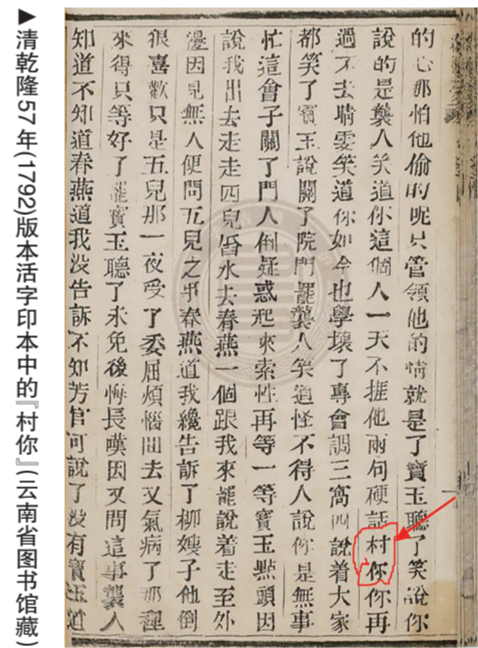 的心那怕他偷的呢只管領他的情就是了寶玉聽了笑說你
說的是襲人笑道你這個人一天不捱他兩句硬話村你你再
過不去晴雯笑道你如今也學壞了專會調三窩四說着大家
都笑了寶玉說關了院門罷襲人笑道怪不得人說你是無事
忙這會子關了門人倒疑惑起來索性再等一等寶玉點頭因
說我出去走走四兒舀水去春燕一個跟我來罷說着走至外
邊因見無人便問五兒之事春燕道我纔告訴了柳嫂子他倒
很喜歡只是五兒那一夜受了委屈煩惱回去又氣病了那裡
來得只等好了罷寶玉聽了未免後悔長嘆因又問這事襲人
知道不知道春燕道我沒告訴不知芳官可說了沒有寶玉道
▶清乾隆57年(1792)版本活字印本中的『村你』(云南省图书馆藏)